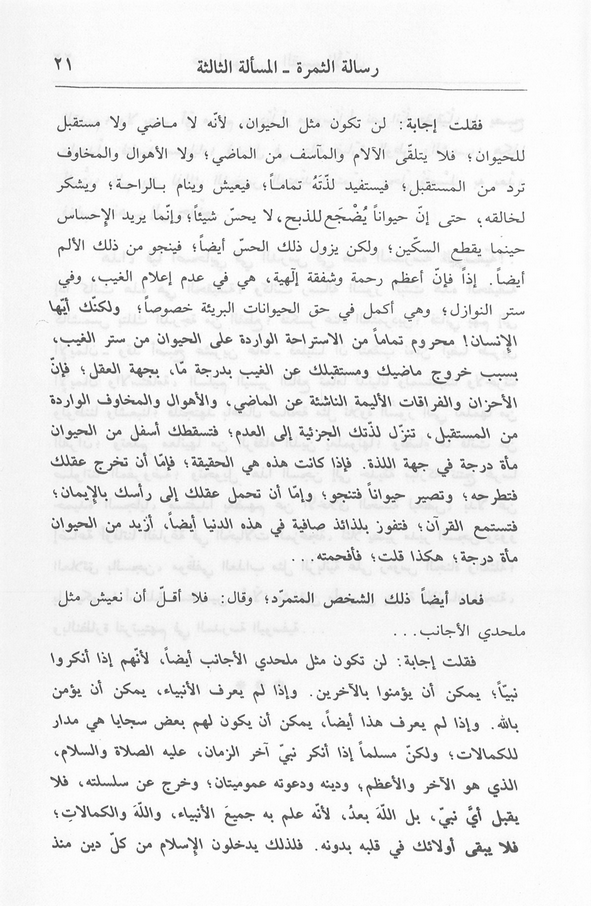 رسالة الثمرة ـ المسألة الثالثة ٢١
فقلت إجابة: لن تكون مثل الحيوان، لأنّه لا ماضي ولا مستقبل
للحيوان؛ فلا يتلقّى الآلام والمآسف من الماضي؛ ولا الأهوال والمخاوف
ترد من المستقبل؛ فيستفيد لذّتَهُ تماماً؛ فيعيش وينام بالراحة؛ ويشكر
لخالقه؛ حتى إنّ حيواناً يُضْجَع للذبح، لا يحسّ شيئاً؛ وإنّما يريد الإحساس
حينما يقطع السكّين؛ ولكن يزول ذلك الحسّ أيضاً؛ فينجو من ذلك الألم
أيضاً. إذاً فإنّ أعظم رحمة وشفقة إلٰهية، هي في عدم إعلام الغيب، وفي
ستر النوازل؛ وهي أكمل في حق الحيوانات البريئة خصوصاً؛ ولكنّك أيّها
الإنسان! محروم تماماً من الاستراحة الواردة على الحيوان من ستر الغيب،
بسبب خروج ماضيك ومستقبلك عن الغيب بدرجة مّا، بجهة العقل؛ فإنّ
الأحزان والفراقات الأليمة الناشئة عن الماضي، والأهوال والمخاوف الواردة
من المستقبل، تنزّل لذّتك الجزئية إلى العدم؛ فتسقطك أسفل من الحيوان
مأة درجة في جهة اللذة. فإذا كانت هذه هي الحقيقة؛ فإمّا أن تخرج عقلك
فتطرحه؛ وتصير حيواناً فتنجو؛ وإمّا أن تحمل عقلك إلى رأسك بالإيمان؛
فتستمع القرآن؛ فتفوز بلذائذ صافية في هذه الدنيا أيضاً، أزيد من الحيوان
مأة درجة؛ هكذا قلت؛ فأفحمته...
فعاد أيضاً ذلك الشخص المتمرّد؛ وقال: فلا أقلّ أن نعيش مثل
ملحدي الأجانب...
فقلت إجابة: لن تكون مثل ملحدي الأجانب أيضاً، لأنّهم إذا أنكروا
نبيّاً؛ يمكن أن يؤمنوا بالآخرين. وإذا لم يعرف الأنبياء، يمكن أن يؤمن
بالله. وإذا لم يعرف هذا أيضاً، يمكن أن يكون لهم بعض سجايا هي مدار
للكمالات؛ ولكنّ مسلماً إذا أنكر نبيّ آخر الزمان، عليه الصلاة والسلام،
الذي هو الآخر والأعظم؛ ودينه ودعوته عموميتان؛ وخرج عن سلسلته، فلا
يقبل أيَّ نبيّ، بل اللّهَ بعدُ، لأنّه علم به جميعَ الأنبياء، واللّهَ والكمالاتِ؛
فلا يبقى أولائك في قلبه بدونه. فلذلك يدخلون الإسلام من كلّ دين منذ